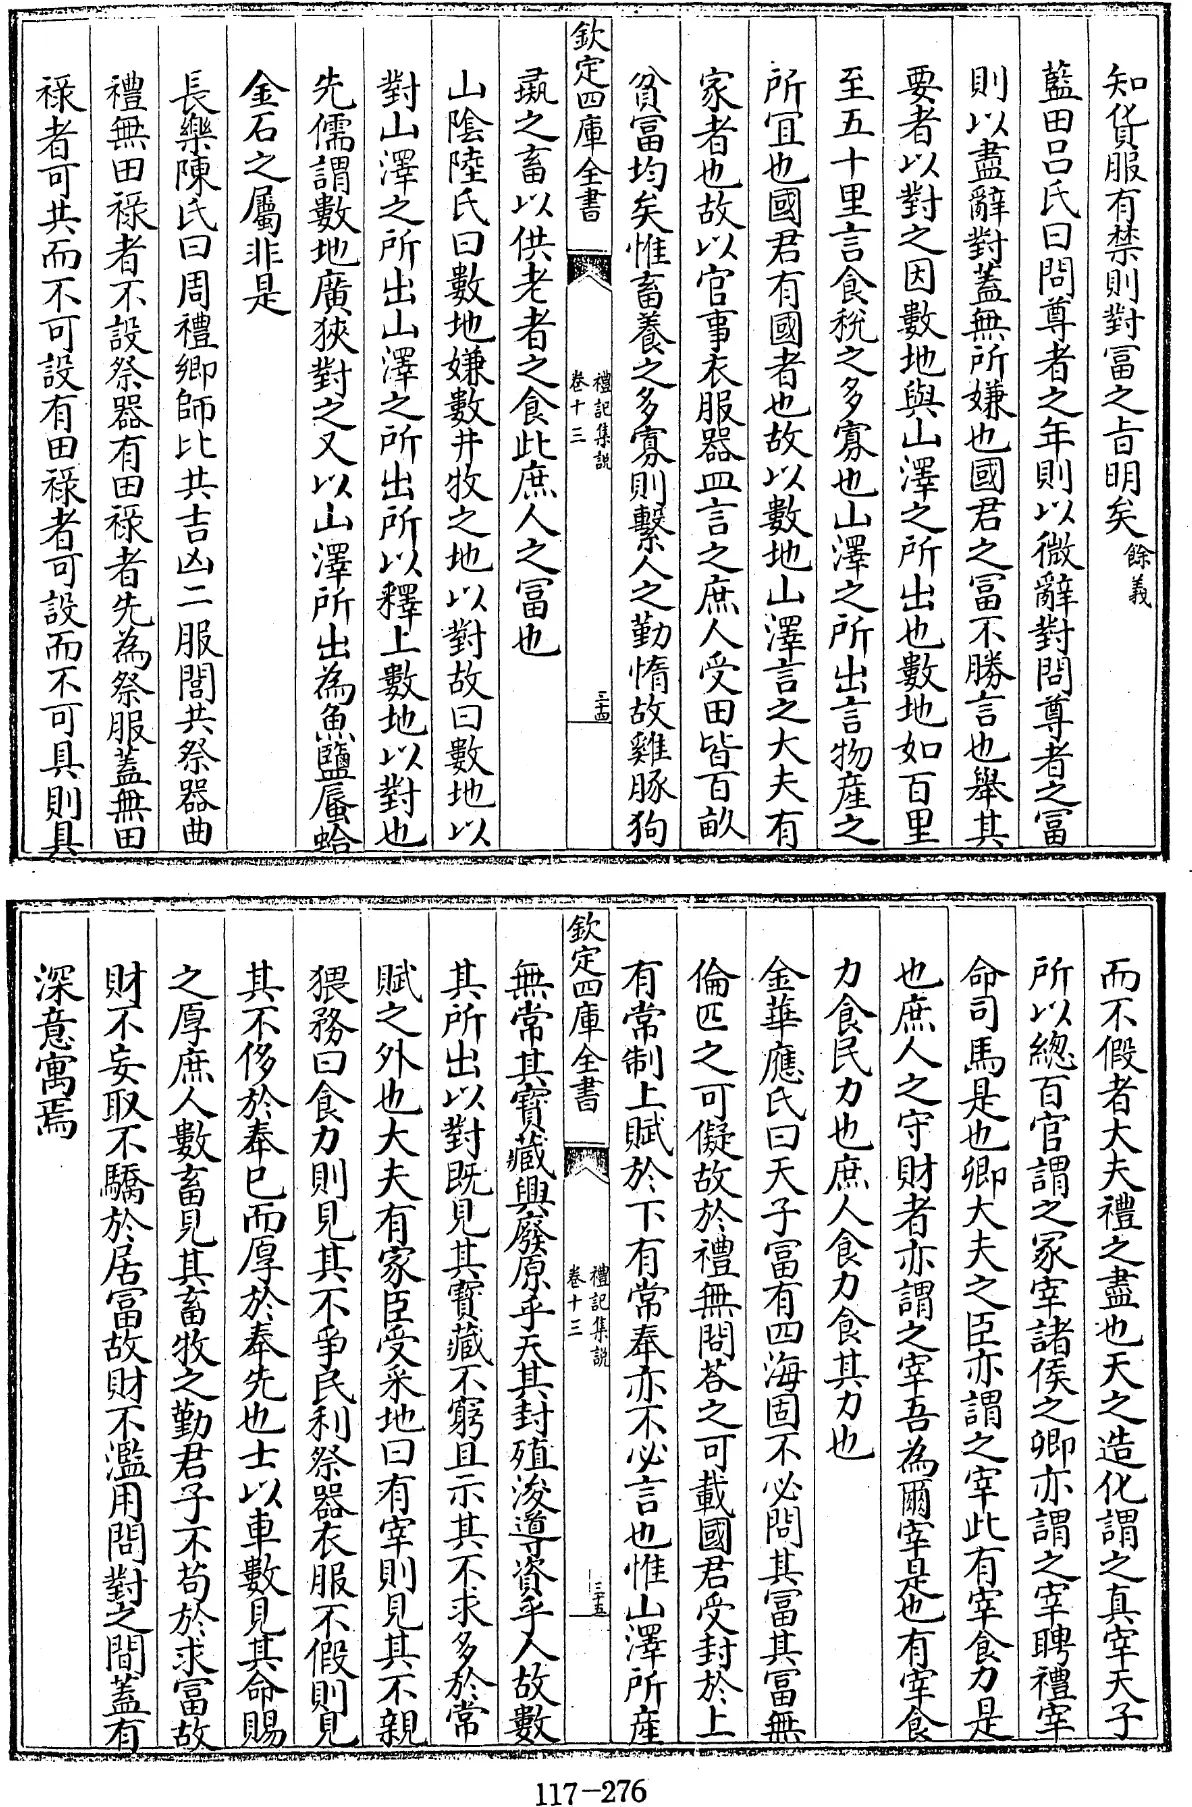 知貨服有禁則對富之旨明矣餘義
藍田呂氏曰問尊者之年則以微辭對問尊者之富
則以盡辭對蓋無所嫌也國君之富不勝言也舉其
要者以對之因數地與山澤之所出也數地如百里
至五十里言食稅之多寡也山澤之所出言物產之
所宜也國君有國者也故以數地山澤言之大夫有
家者也故以官事衣服器皿言之庶人受田皆百畝
貧富均矣惟畜養之多寡則繫人之勤惰故雞豚狗
欽定四庫全書
禮記集說
卷十三
三十四
彘之畜以供老者之食此庶人之富也
山陰陸氏曰數地嫌數井牧之地以對故曰數地以
對山澤之所出山澤之所出所以釋上數地以對也
先儒謂數地廣狹對之又以山澤所出為魚鹽蜃蛤
金石之屬非是
長樂陳氏曰周禮鄉師比共吉凶二服閭共祭器曲
禮無田祿者不設祭器有田祿者先為祭服蓋無田
祿者可共而不可設有田祿者可設而不可具則具
而不假者大夫禮之盡也天之造化謂之真宰天子
所以總百官謂之冢宰諸侯之卿亦謂之宰聘禮宰
命司馬是也卿大夫之臣亦謂之宰此有宰食力是
也庶人之守財者亦謂之宰吾為爾宰是也有宰食
力食民力也庶人食力食其力也
金華應氏曰天子富有四海固不必問其富其富無
倫匹之可儗故於禮無問荅之可載國君受封於上
有常制上賦於下有常奉亦不必言也惟山澤所產
欽定四庫全書
禮記集說
卷十三
三十五
無常其寶藏興廢原乎天其封殖浚導資乎人故數
其所出以對既見其寶藏不窮且示其不求多於常
賦之外也大夫有家臣受采地曰有宰則見其不親
猥務曰食力則見其不爭民利祭器衣服不假則見
其不侈於奉已而厚於奉先也士以車數見其命賜
之厚庶人數畜見其畜牧之勤君子不苟於求富故
財不妄取不驕於居富故財不濫用問對之間蓋有
深意寓焉
117-276